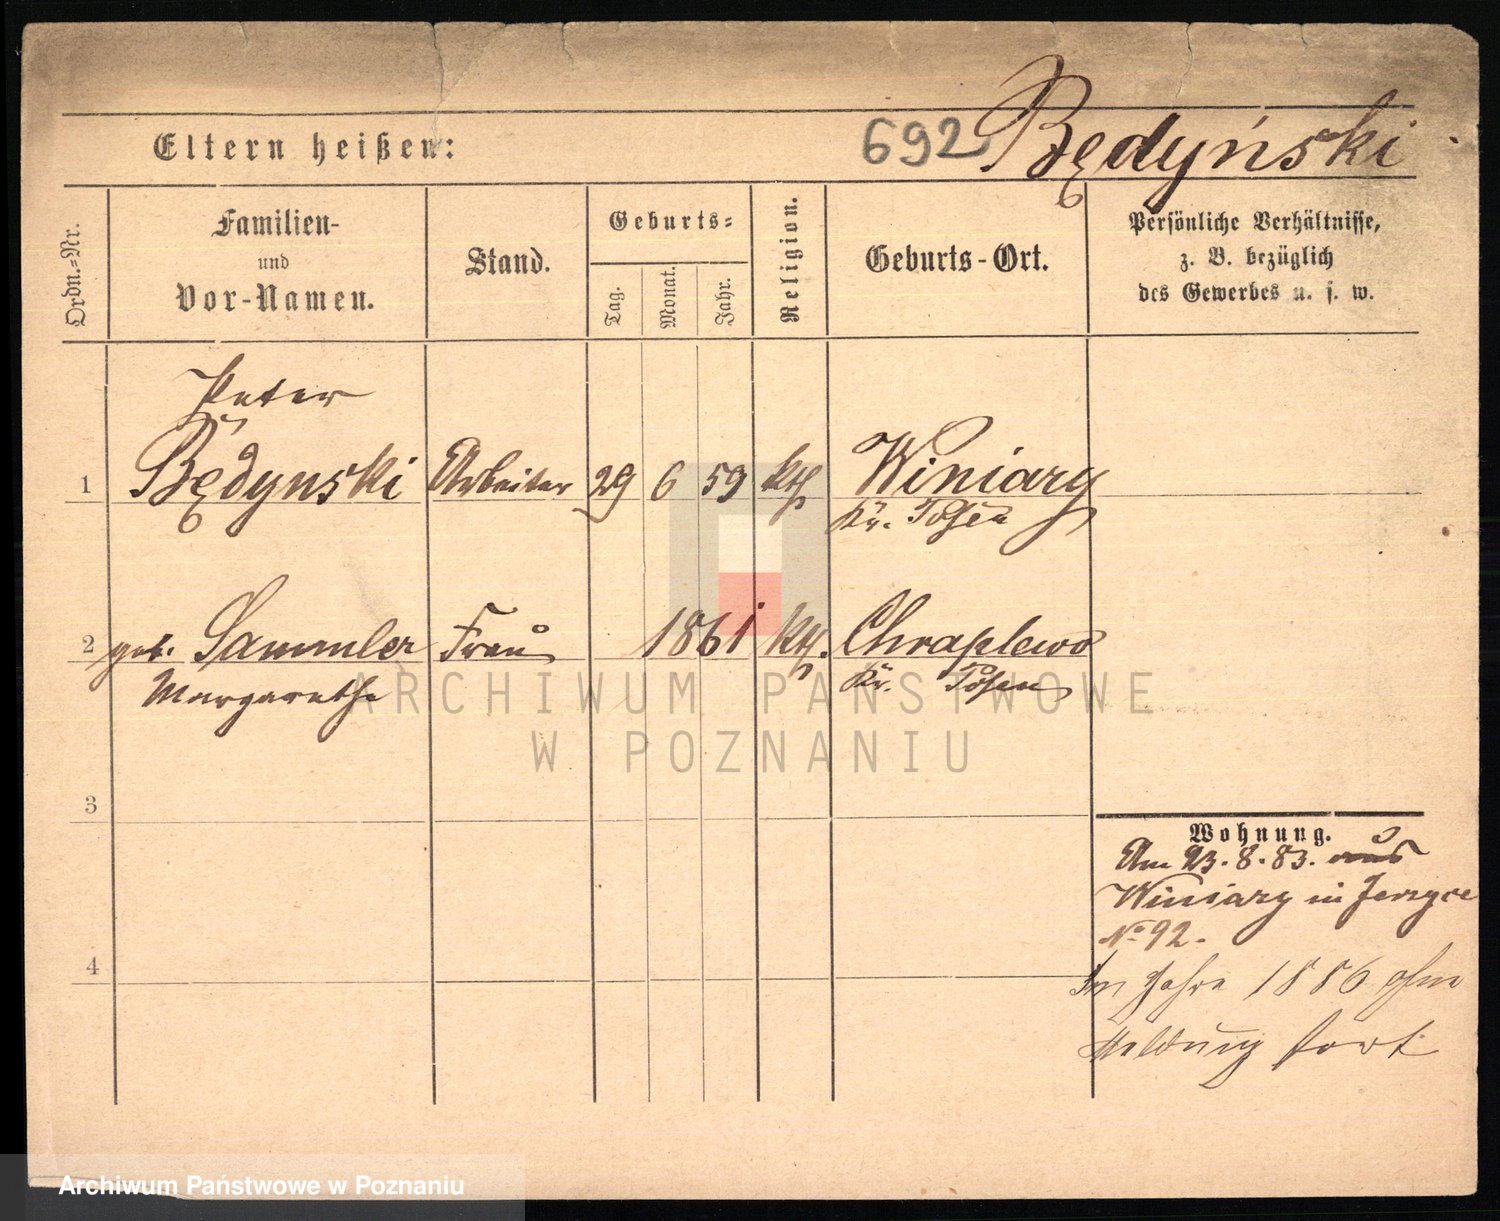 692 Będyński
Eltern heißen:
Ordn.-Nr.
Familien-
und
Vor-Namen.
Stand.
Geburts-
Tag.
Monat.
Jahr.
Religion.
Geburts-Ort.
Persönliche Verhältnisse,
z. B. bezüglich
des Gewerbes u. s. w.
Peter
1 Będynski Arbeiter 29 6 59 kth Winiary
Kr. Posen
2 geb. Sammler Frau 1861 kth. Chraplewo
Margarethe Kr. Posen
ARCHIWUM PAŃSTWOWE
W POZNANIU
3
Wohnung.
Am 23.8.83. aus
Winiary in Jerzyce
No 92.
4
Im Jahre 1886 ohne
Meldung fort
Archiwum Państwowe w Poznaniu